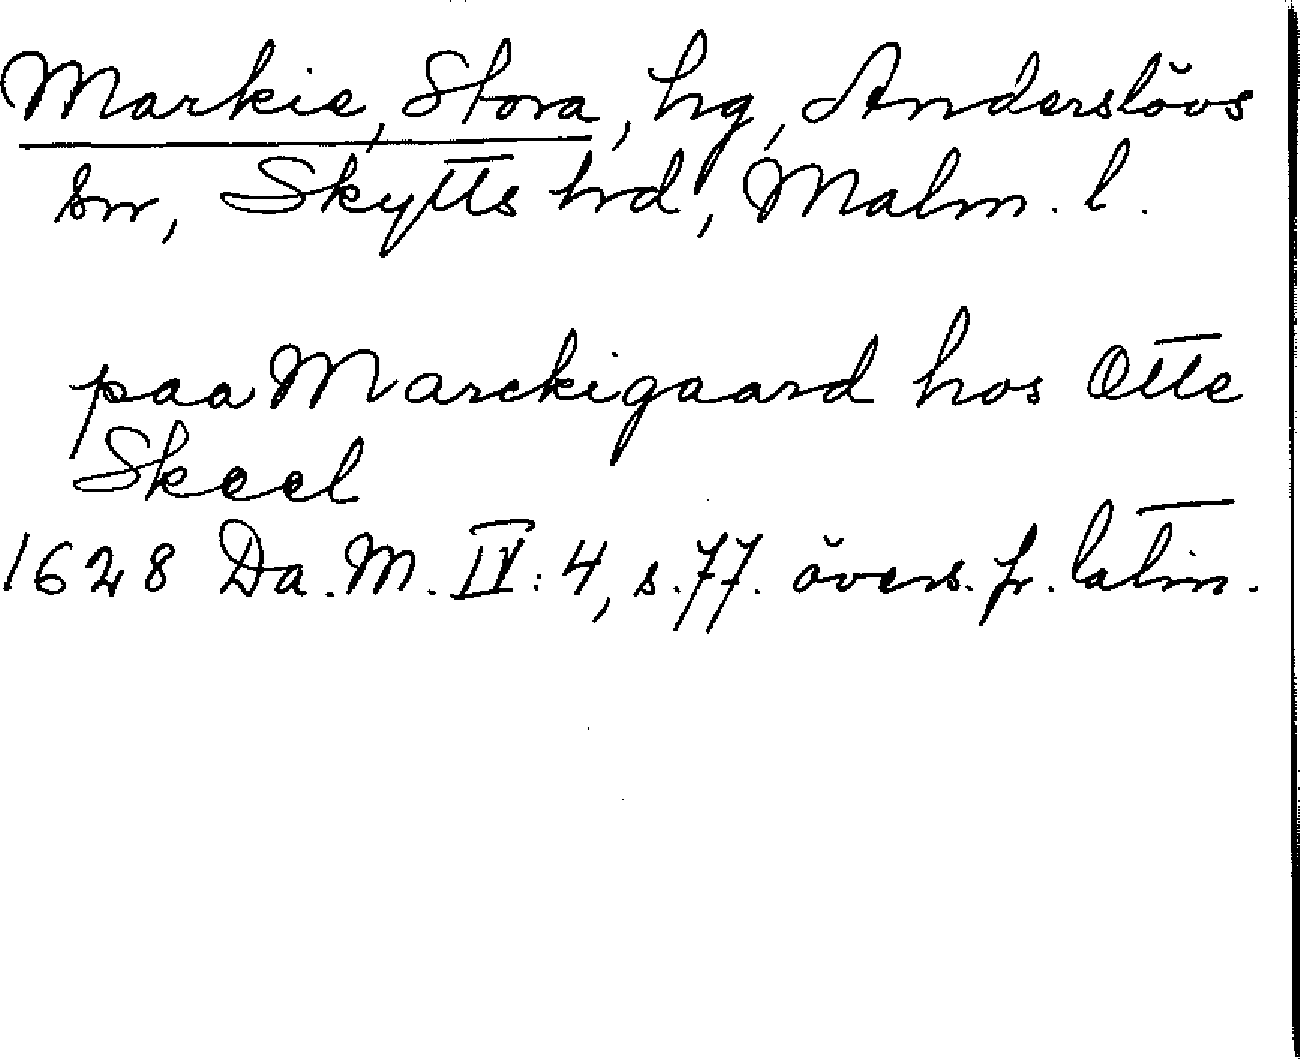 Markie, Stora, hg, Anderslövs
sn, Skytts hrd, Malm. l.
paa Marckigaard hos Otte
Skeel
1628 Da. M. IV: 4, s. 77. övers. fr. latin.